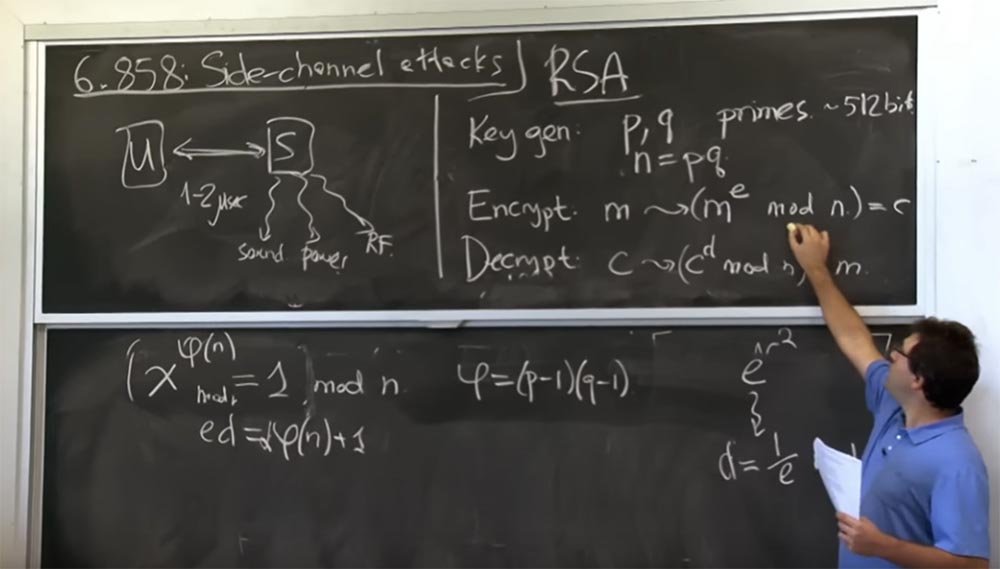 6.858: Side-channel attacks
RSA
U
S
1-2 μsec
sound power RF
Key gen: p, q primes. ~512bit
n = pq
Encrypt: m ⤳ (m^e mod n) = c
Decrypt: c ⤳ (c^d mod n) m.
(x^φ(n) = 1 mod n.
φ = (p-1)(q-1)
ed = φ(n)+1
e
d = 1/e